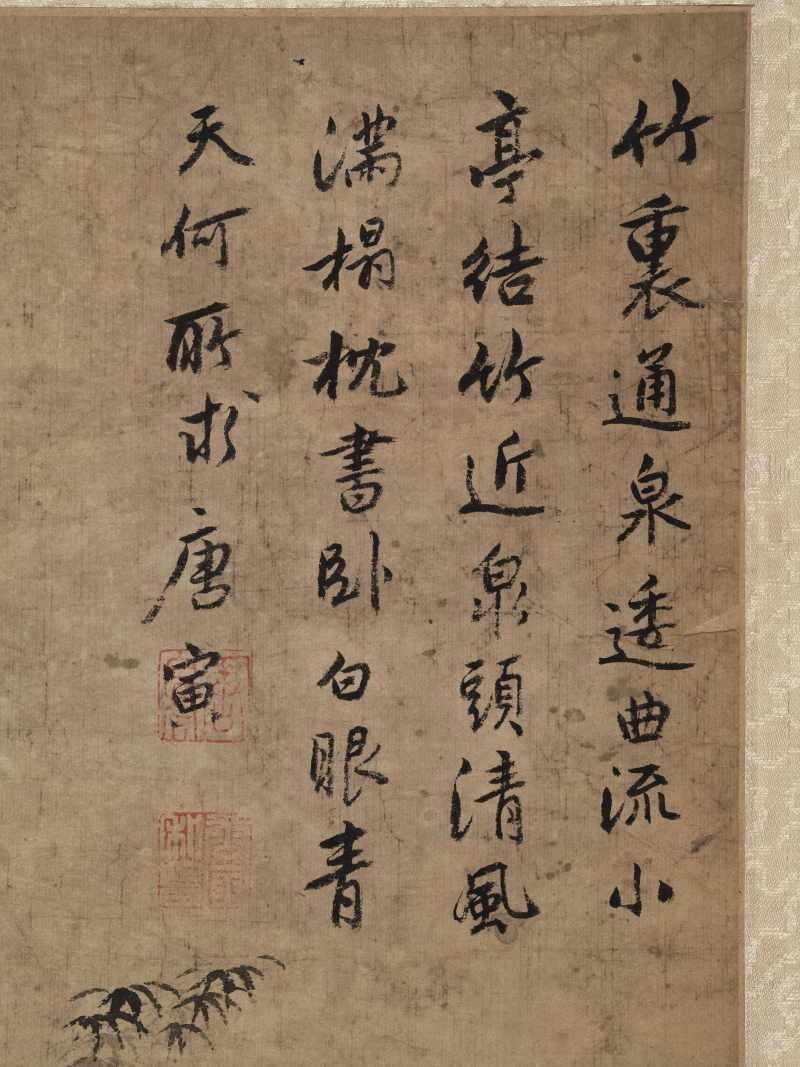 竹裏通泉逶曲流小
亭結竹近泉頭清風
滿榻枕書卧白眼青
天何所求唐寅